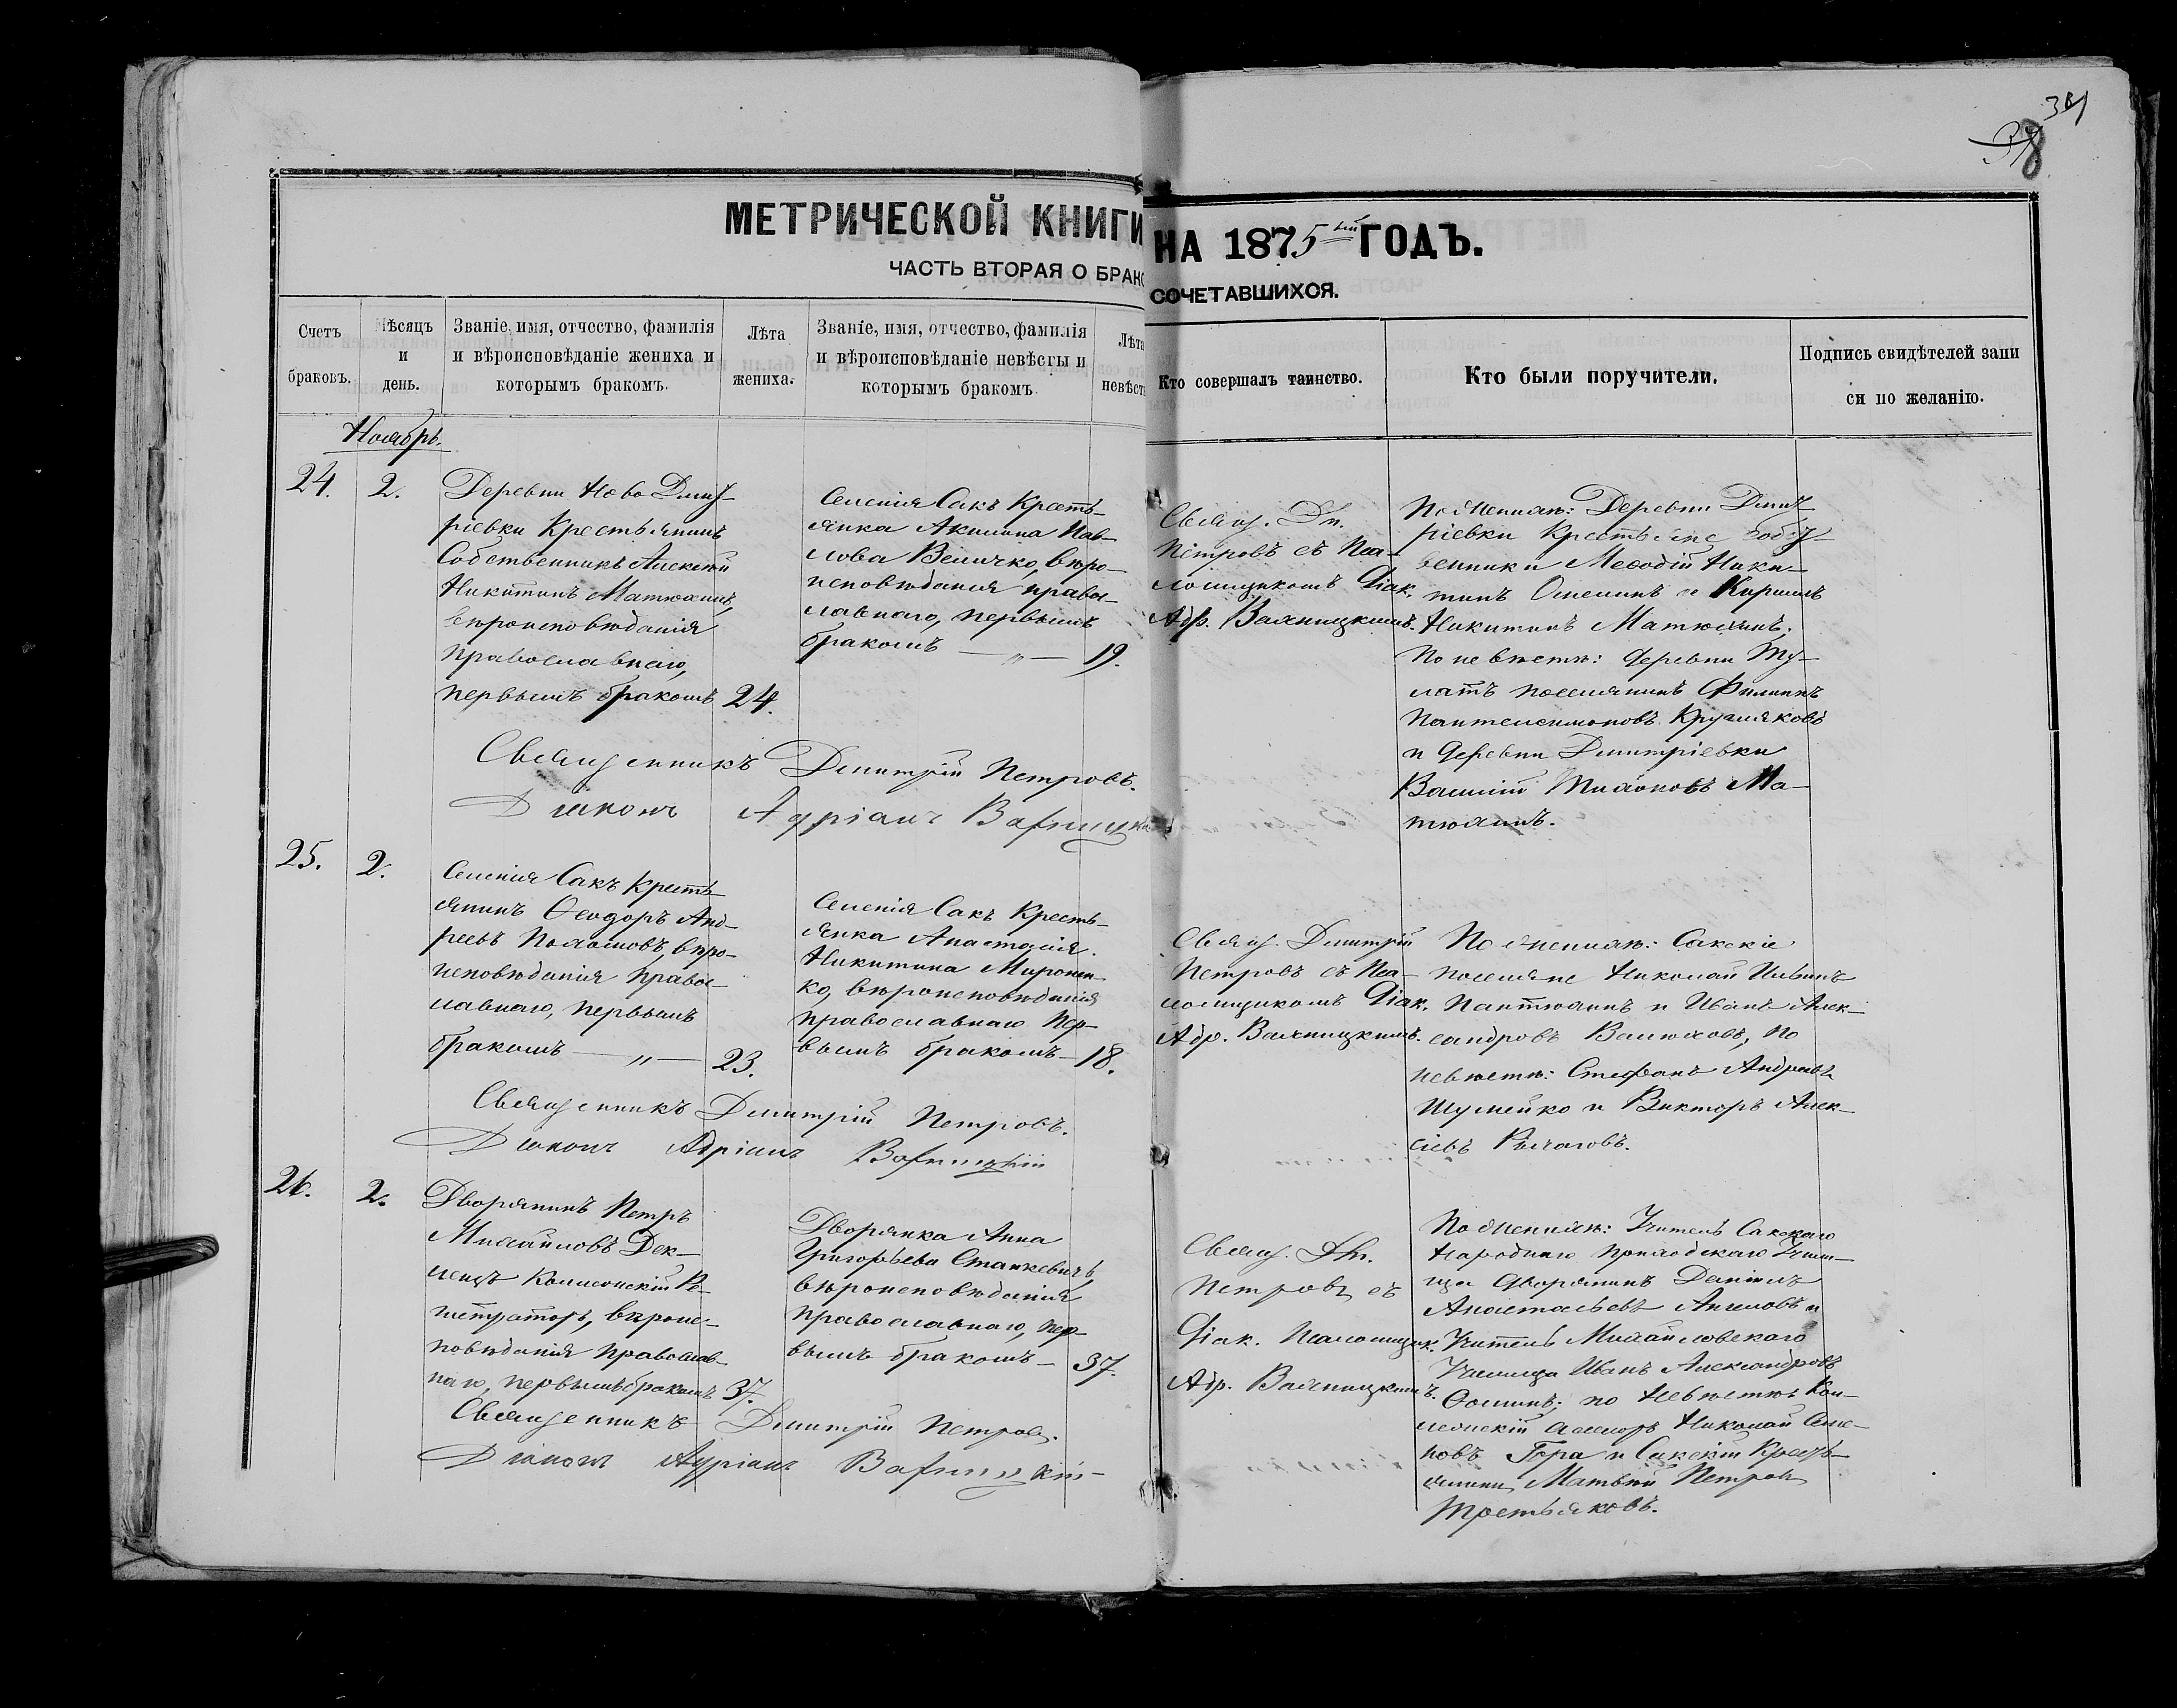 341
38
МЕТРИЧЕСКОЙ КНИГИ НА 1875 ый ГОДЪ.
ЧАСТЬ ВТОРАЯ О БРАКОСОЧЕТАВШИХСЯ.
Счетъ браковъ.
Мѣсяцъ и день.
Званіе, имя, отчество, фамилія
и вѣроисповѣданіе жениха и
которымъ бракомъ.
Лѣта
жениха.
Званіе, имя, отчество, фамилія
и вѣроисповѣданіе невѣсты и
которымъ бракомъ
Лѣта
невѣсты
Кто совершалъ таинство.
Кто были поручители.
Подпись свидѣтелей запи
си по желанію.
Ноябрь.
24.
2.
Деревни Ново Дмит-
ріевки Крестьянинъ
Собственникъ Алексѣй
Никитинъ Матюхинъ,
вѣроисповѣданія
православнаго,
первымъ бракомъ
24.
Селенія Сакъ Кресть-
янка Акилина Пав-
лова Величко, вѣро-
исповѣданія правос-
лавнаго, первымъ
бракомъ — „ —
19.
Свящ. Дм.
Петровъ съ Пса-
ломщикомъ Діак.
Адр. Вахницкимъ.
По женихѣ: Деревни Дмит-
ріевки Крестьяне собст-
венники Меѳодій Ники-
тинъ и Кириллъ
Никитинъ Матюхинъ;
По невѣстѣ: деревни Ту-
латъ поселянинъ Филиппъ
Пантелеимоновъ Кругляковъ
и деревни Дмитріевки
Василій Тихоновъ Ма-
тюхинъ.
Священникъ Дмитрій Петровъ.
Діаконъ Адріанъ Вахницкій
25.
2.
Селенія Сакъ Кресть-
янинъ Ѳеодоръ Анд-
реевъ Пахомовъ, вѣро-
исповѣданія правос-
лавнаго, первымъ
бракомъ — „ —
23.
Селенія Сакъ Кресть-
янка Анастасія
Никитина Миронен-
ко, вѣроисповѣданія
православнаго пер-
вымъ бракомъ —
18.
Свящ. Дмитрій
Петровъ съ Пса-
ломщикомъ Діак.
Адр. Вахницкимъ.
По женихѣ: Сакскіе
поселяне Николай
Пантюхинъ и Иванъ Алек-
сандровъ Валюховъ, по
невѣстѣ: Стефанъ Андреевъ
Шумейко и Викторъ Алек-
сѣевъ Рычаговъ.
Священникъ Дмитрій Петровъ.
Діаконъ Адріанъ Вахницкій
26.
2.
Дворянинъ Петръ
Михайловъ Дек-
ленцъ Коллежскій Ре-
гистраторъ, вѣроис-
повѣданія православ-
наго, первымъ бракомъ
37.
Дворянка Анна
Григорьева Станкевичъ,
вѣроисповѣданія
православнаго, пер-
вымъ бракомъ —
37.
Свящ. Дм.
Петровъ съ
Діак. Псаломщик.
Адр. Вахницкимъ.
По женихѣ: Учитель Сакскаго
Народнаго приходскаго Учили-
ща дворянинъ Даніилъ
Анастасьевъ Ангеловъ и
Учитель Михайловскаго
Училища Иванъ Александровъ
Ѳоминъ; по невѣстѣ: Кол-
лежскій Ассесоръ Николай Семе-
новъ Гора и Сакскій Кресть-
янинъ Матвѣй Петровъ
Третьяковъ.
Священникъ Дмитрій Петровъ.
Діаконъ Адріанъ Вахницкій